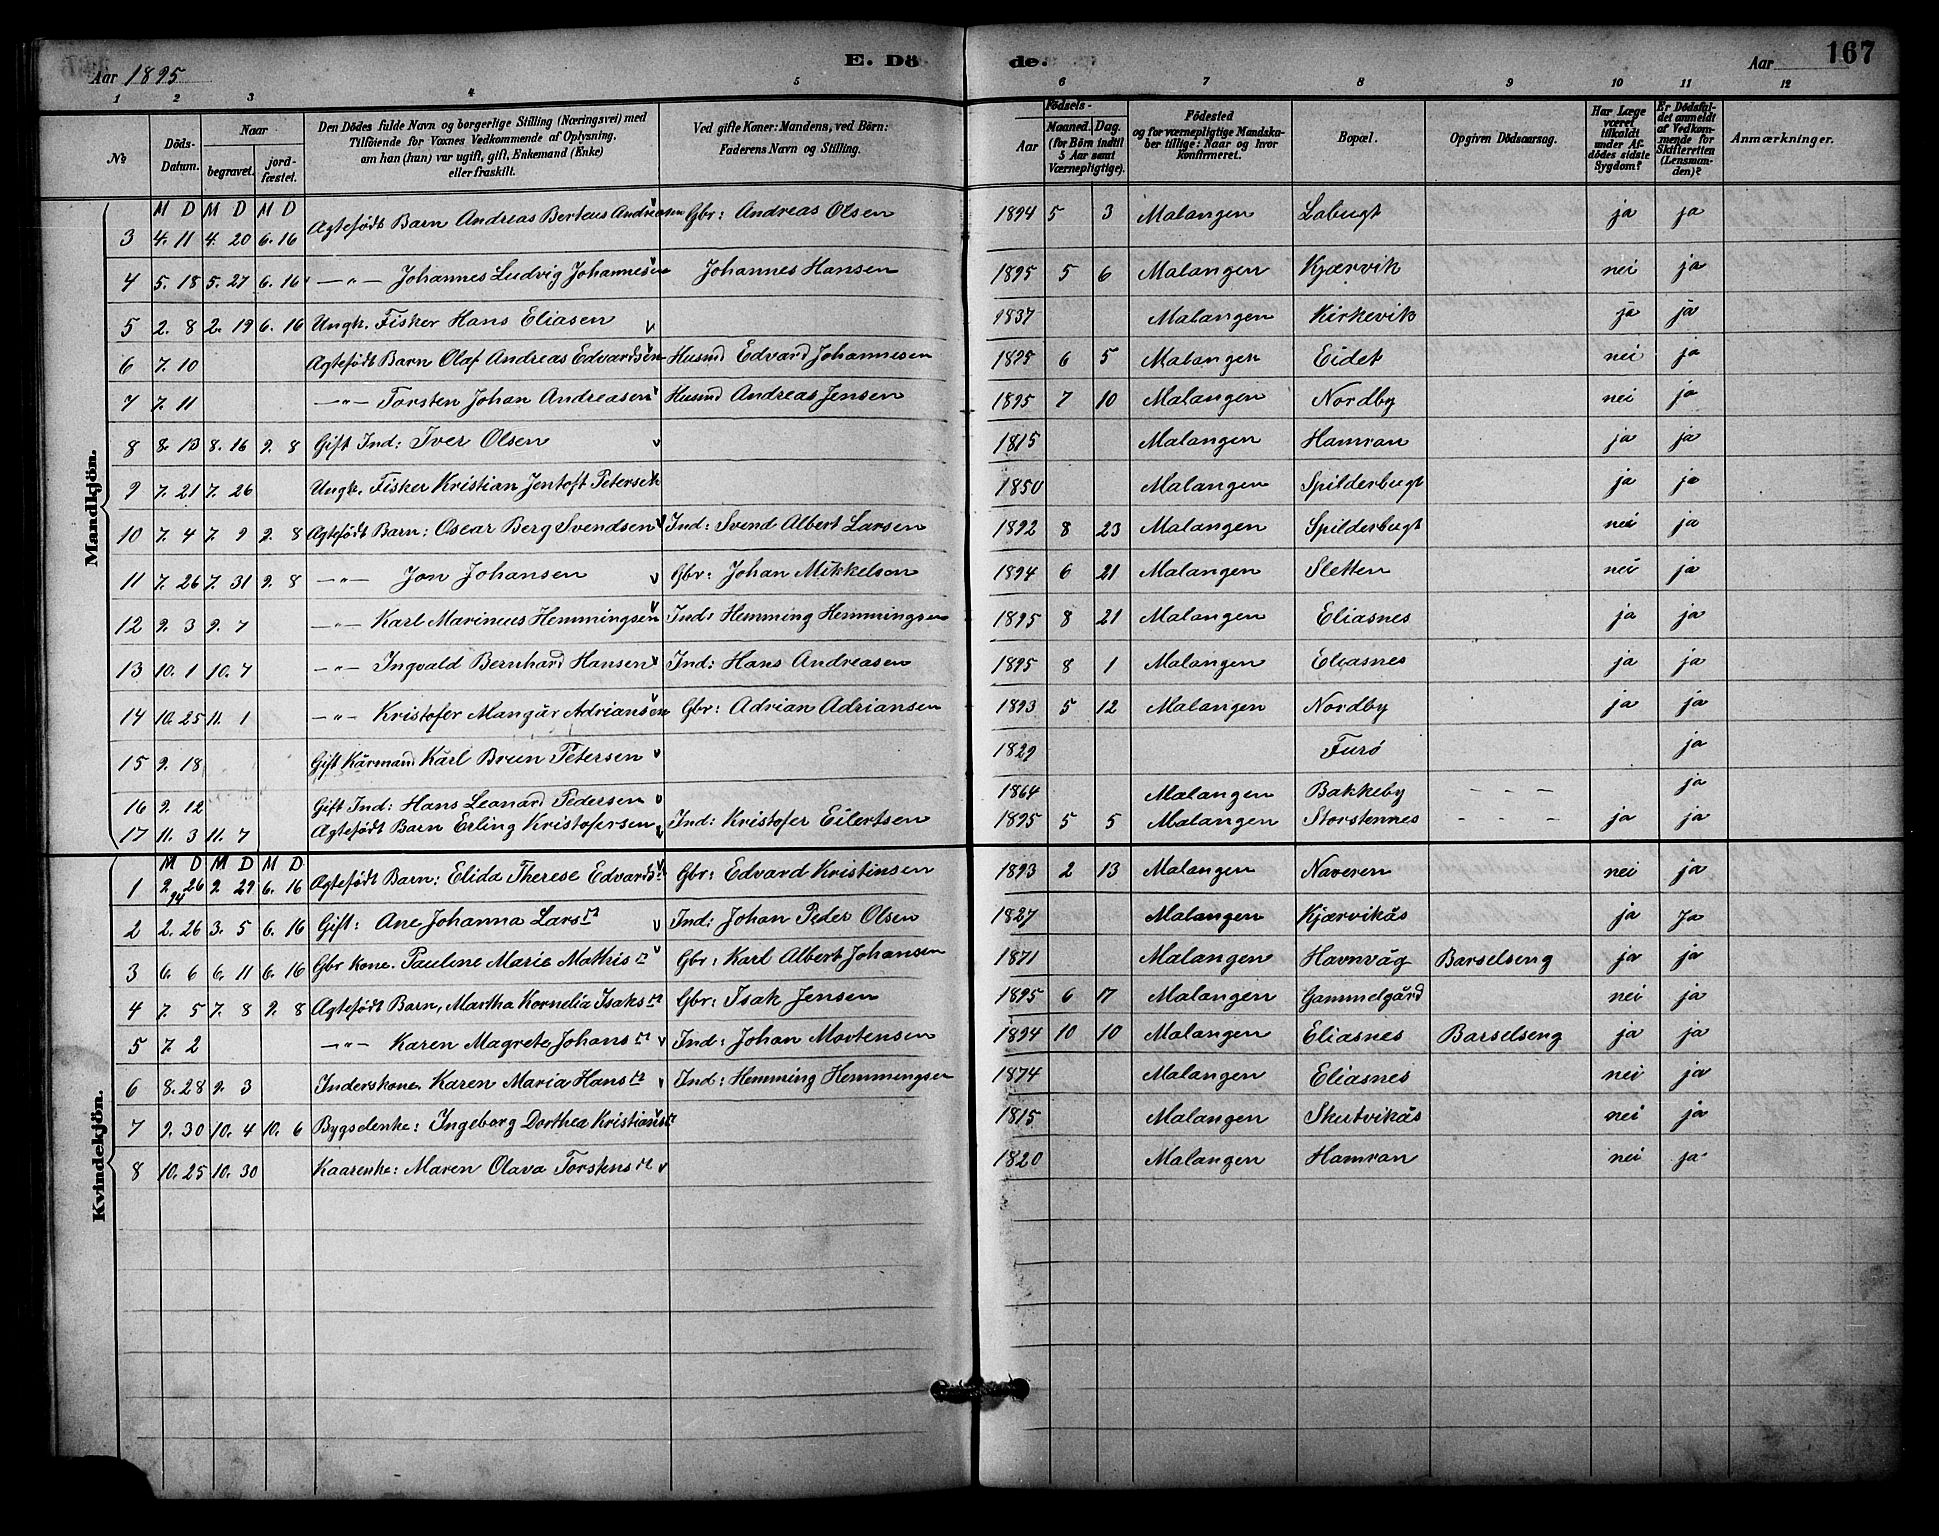 Aar 1895
E. Dö
de.
Aar
167
1 2 3 4 5 6 7 8 9 10 11 12
№
Döds-Datum.
Naar
begravet.
jord-fæstet.
Den Dödes fulde Navn og borgerlige Stilling (Næringsvei) med Tilföiende for Voxnes Vedkommende af Oplysning, om han (hun) var ugift, gift, Enkemand (Enke) eller fraskilt.
Ved gifte Koner: Mandens, ved Börn: Faderens Navn og Stilling.
Födsels-
Aar
Maaned. Dag.
(for Börn indtil 5 Aar samt Værnepligtige).
Födested og for værnepligtige Mandskaber tillige: Naar og hvor Konfirmeret.
Bopæl.
Opgiven Dödsaarsag.
Har Læge været tilkaldt under Afdödes sidste Sygdom?
Er Dödsfaldet anmeldt af Vedkommende for Skifteretten (Lensmanden)?
Anmærkninger.
Mandkjön.
M D M D M D
3 4. 11 4. 20 6. 16 Agtefödt Barn Andreas Berteus Andreasen Gbr: Andreas Olsen 1894 5 3 Malangen Labugt ja ja
4 5. 18 5. 27 6. 16 —„— Johannes Ludvig Johannesen Johannes Hansen 1895 5 6 Malangen Kjærvik nei ja
5 2. 8 2. 19 6. 16 Ungk. Fisker Hans Eliasen 1837 Malangen Kirkevik ja ja
6 7. 10 Agtefödt Barn Olaf Andreas Edvardsen Husmd Edvard Johannesen 1895 6 5 Malangen Eidet nei ja
7 7. 11 —„— Torsten Johan Andreasen Husmd Andreas Jensen 1895 7 10 Malangen Nordby nei ja
8 8. 13 8. 16 9. 8 Gift Ind: Iver Olsen 1815 Malangen Hamran ja ja
9 7. 21 7. 26 Ungk. Fisker Kristian Jentoft Petersen 1850 Malangen Spilderbugt ja ja
10 7. 4 7. 9 9. 8 Agtefödt Barn: Oscar Berg Svendsen Ind: Svend Albert Larsen 1892 8 23 Malangen Spilderbugt nei ja
11 7. 26 7. 31 9. 8 —„— Jon Johansen Gbr: Johan Mikkelsen 1894 6 21 Malangen Sletten nei ja
12 9. 3 9. 7 —„— Karl Marineus Hemmingsen Ind: Hemming Hemmingsen 1895 8 21 Malangen Eliasnes ja ja
13 10. 1 10. 7 —„— Ingvald Bernhard Hansen Ind: Hans Andreasen 1895 8 1 Malangen Eliasnes ja ja
14 10. 25 11. 1 —„— Kristofer Mangár Adriansen Gbr: Adrian Adriansen 1893 5 12 Malangen Nordby ja ja
15 9. 18 Gift Kårmand Karl Brun Petersen 1829 Furö ja
16 9. 12 Gift Ind: Hans Leonard Pedersen 1864 Malangen Bakkeby — — — ja
17 11. 3 11. 7 Agtefödt Barn Erling Kristofersen Ind: Kristofer Eilertsen 1895 5 5 Malangen Storstennes — — — ja ja
Kvindekjön.
M D M D M D
1 2. 26 2. 29 6. 16 Agtefödt Barn: Elida Therese Edvardsd. Gbr: Edvard Kristinsen 1893 2 13 Malangen Naveren nei ja
14
2 2. 26 3. 5 6. 16 Gift: Ane Johanna Larsd. Ind: Johan Peder Olsen 1827 Malangen Kjærvikås ja Ja
3 6. 6 6. 11 6. 16 Gbr Kone. Pauline Marie Mathisd. Gbr: Karl Albert Johansen 1871 Malangen Havnvåg Barselseng ja ja
4 7. 5 7. 8 9. 8 Agtefödt Barn, Martha Kornelia Isaksd. Gbr: Isak Jensen 1895 6 17 Malangen Gammelgård nei ja
5 7. 2 —„— Karen Magrete Johansd. Ind: Johan Mortensen 1894 10 10 Malangen Eliasnes Barselseng ja ja
6 8. 28 9. 3 Inderskone. Karen Maria Hansd. Ind: Hemming Hemmingsen 1874 Malangen Eliasnes nei ja
7 9. 30 10. 4 10. 6 Bygsdenke: Ingeborg Dorthea Kristiansd. 1815 Malangen Skutvikås nei ja
8 10. 25 10. 30 Kaarenke: Maren Olava Torstensd. 1820 Malangen Hamran nei ja